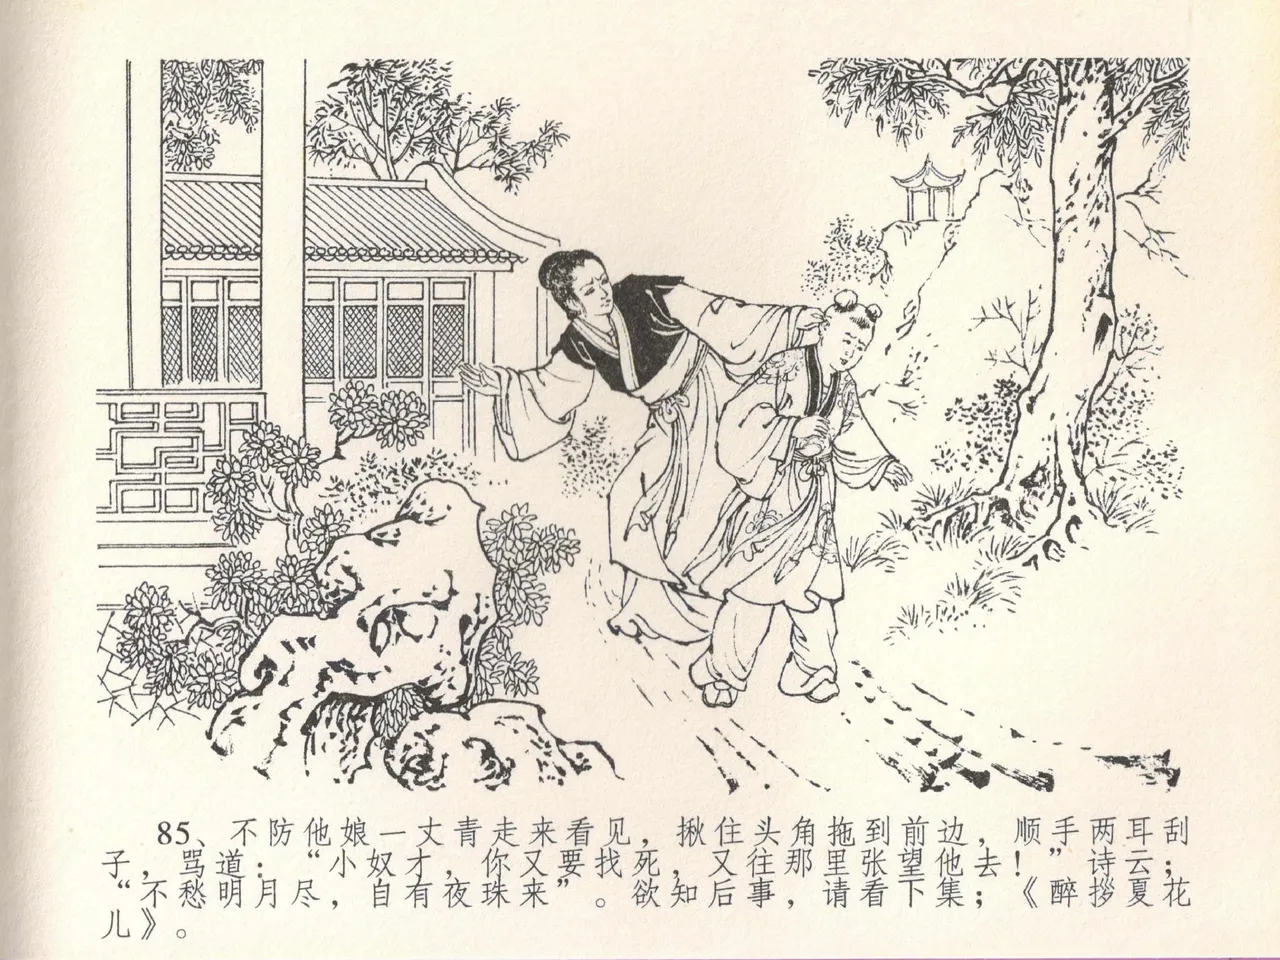 85、不防他娘一丈青走来看见，揪住头角拖到前边，顺手两耳刮
子，骂道：“小奴才，你又要找死，又往那里张望他去！”诗云；
“不愁明月尽，自有夜珠来”。欲知后事，请看下集；《醉拶夏花
儿》。